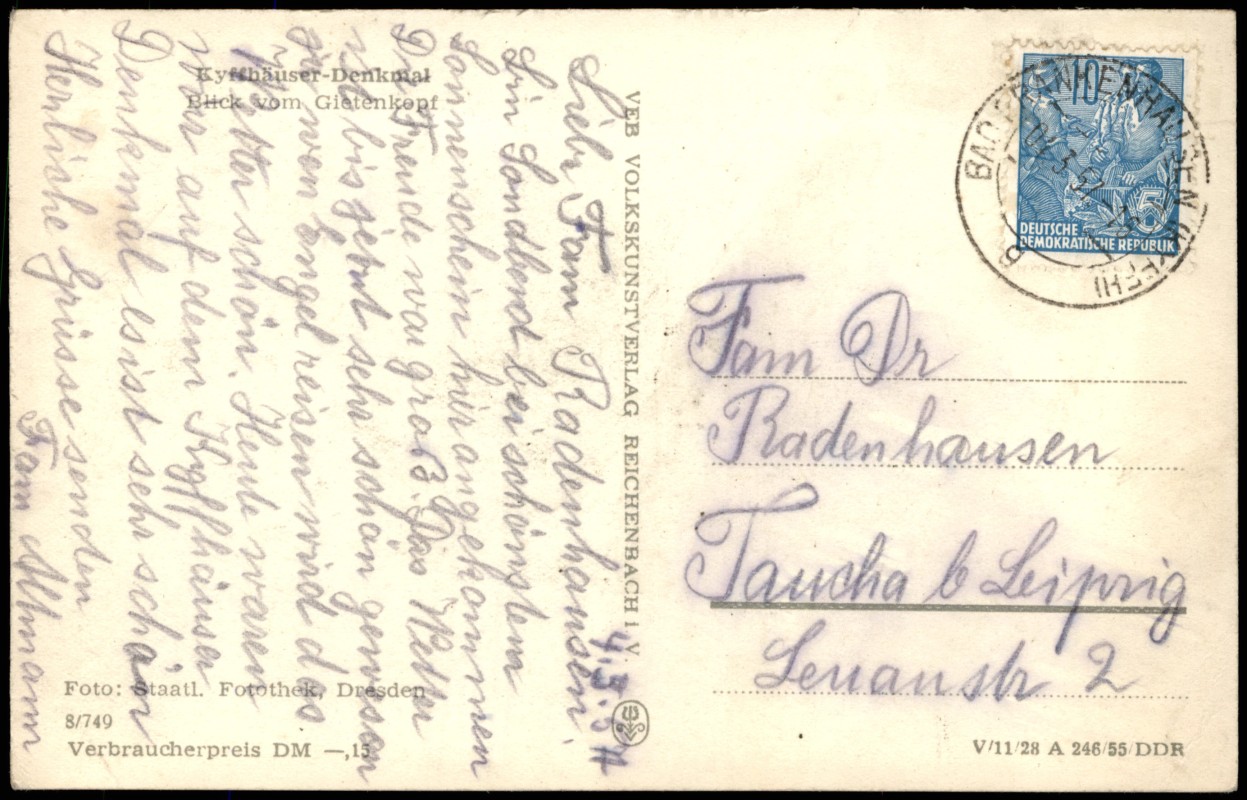 Kyffhäuser-Denkmal
Blick vom Gietenkopf
4.5.57
Liebe Fam Radenhausen!
Sin Sondbend bei schönstem
Sonnenschein hir angekommen
Die Freude war groß. Das Wetter
ist bis jetzt sehr schön gewesen
für wen Engel reisen wird das
Wetter schön. Heute waren
wir auf dem Kyffhäuser
Denkmal es ist sehr schön
Herzliche Grüsse senden
Fam Altmann
Foto: Staatl. Fotothek, Dresden
8/749
Verbraucherpreis DM —,15
VEB VOLKSKUNSTVERLAG REICHENBACH i. V.
10
5
DEUTSCHE
DEMOKRATISCHE REPUBLIK
BAD FRANKENHAUSEN (KYFFH)
Fam Dr
Radenhausen
Taucha b Leipzig
Lenaustr 2
V/11/28 A 246/55/DDR